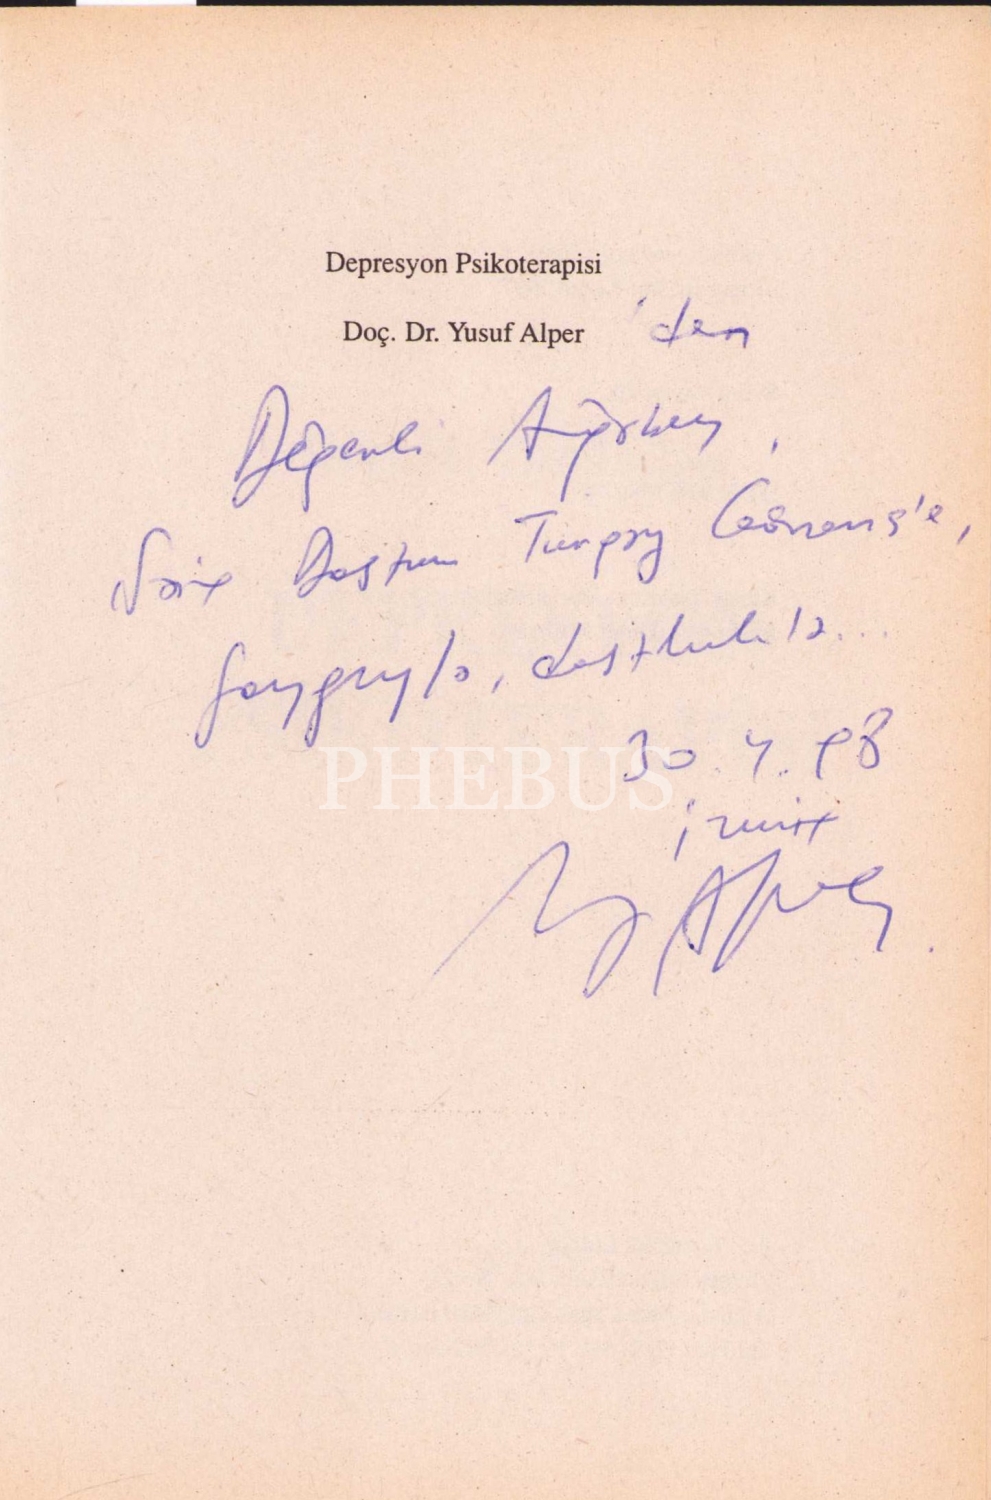 Depresyon Psikoterapisi
Doç. Dr. Yusuf Alper 'den
Değerli Ağabey,
Şair Dostum Turgay Gönenç'e,
Saygıyla, dostlukla...
PHEBUS
30.4.98
izmir
Y Alper